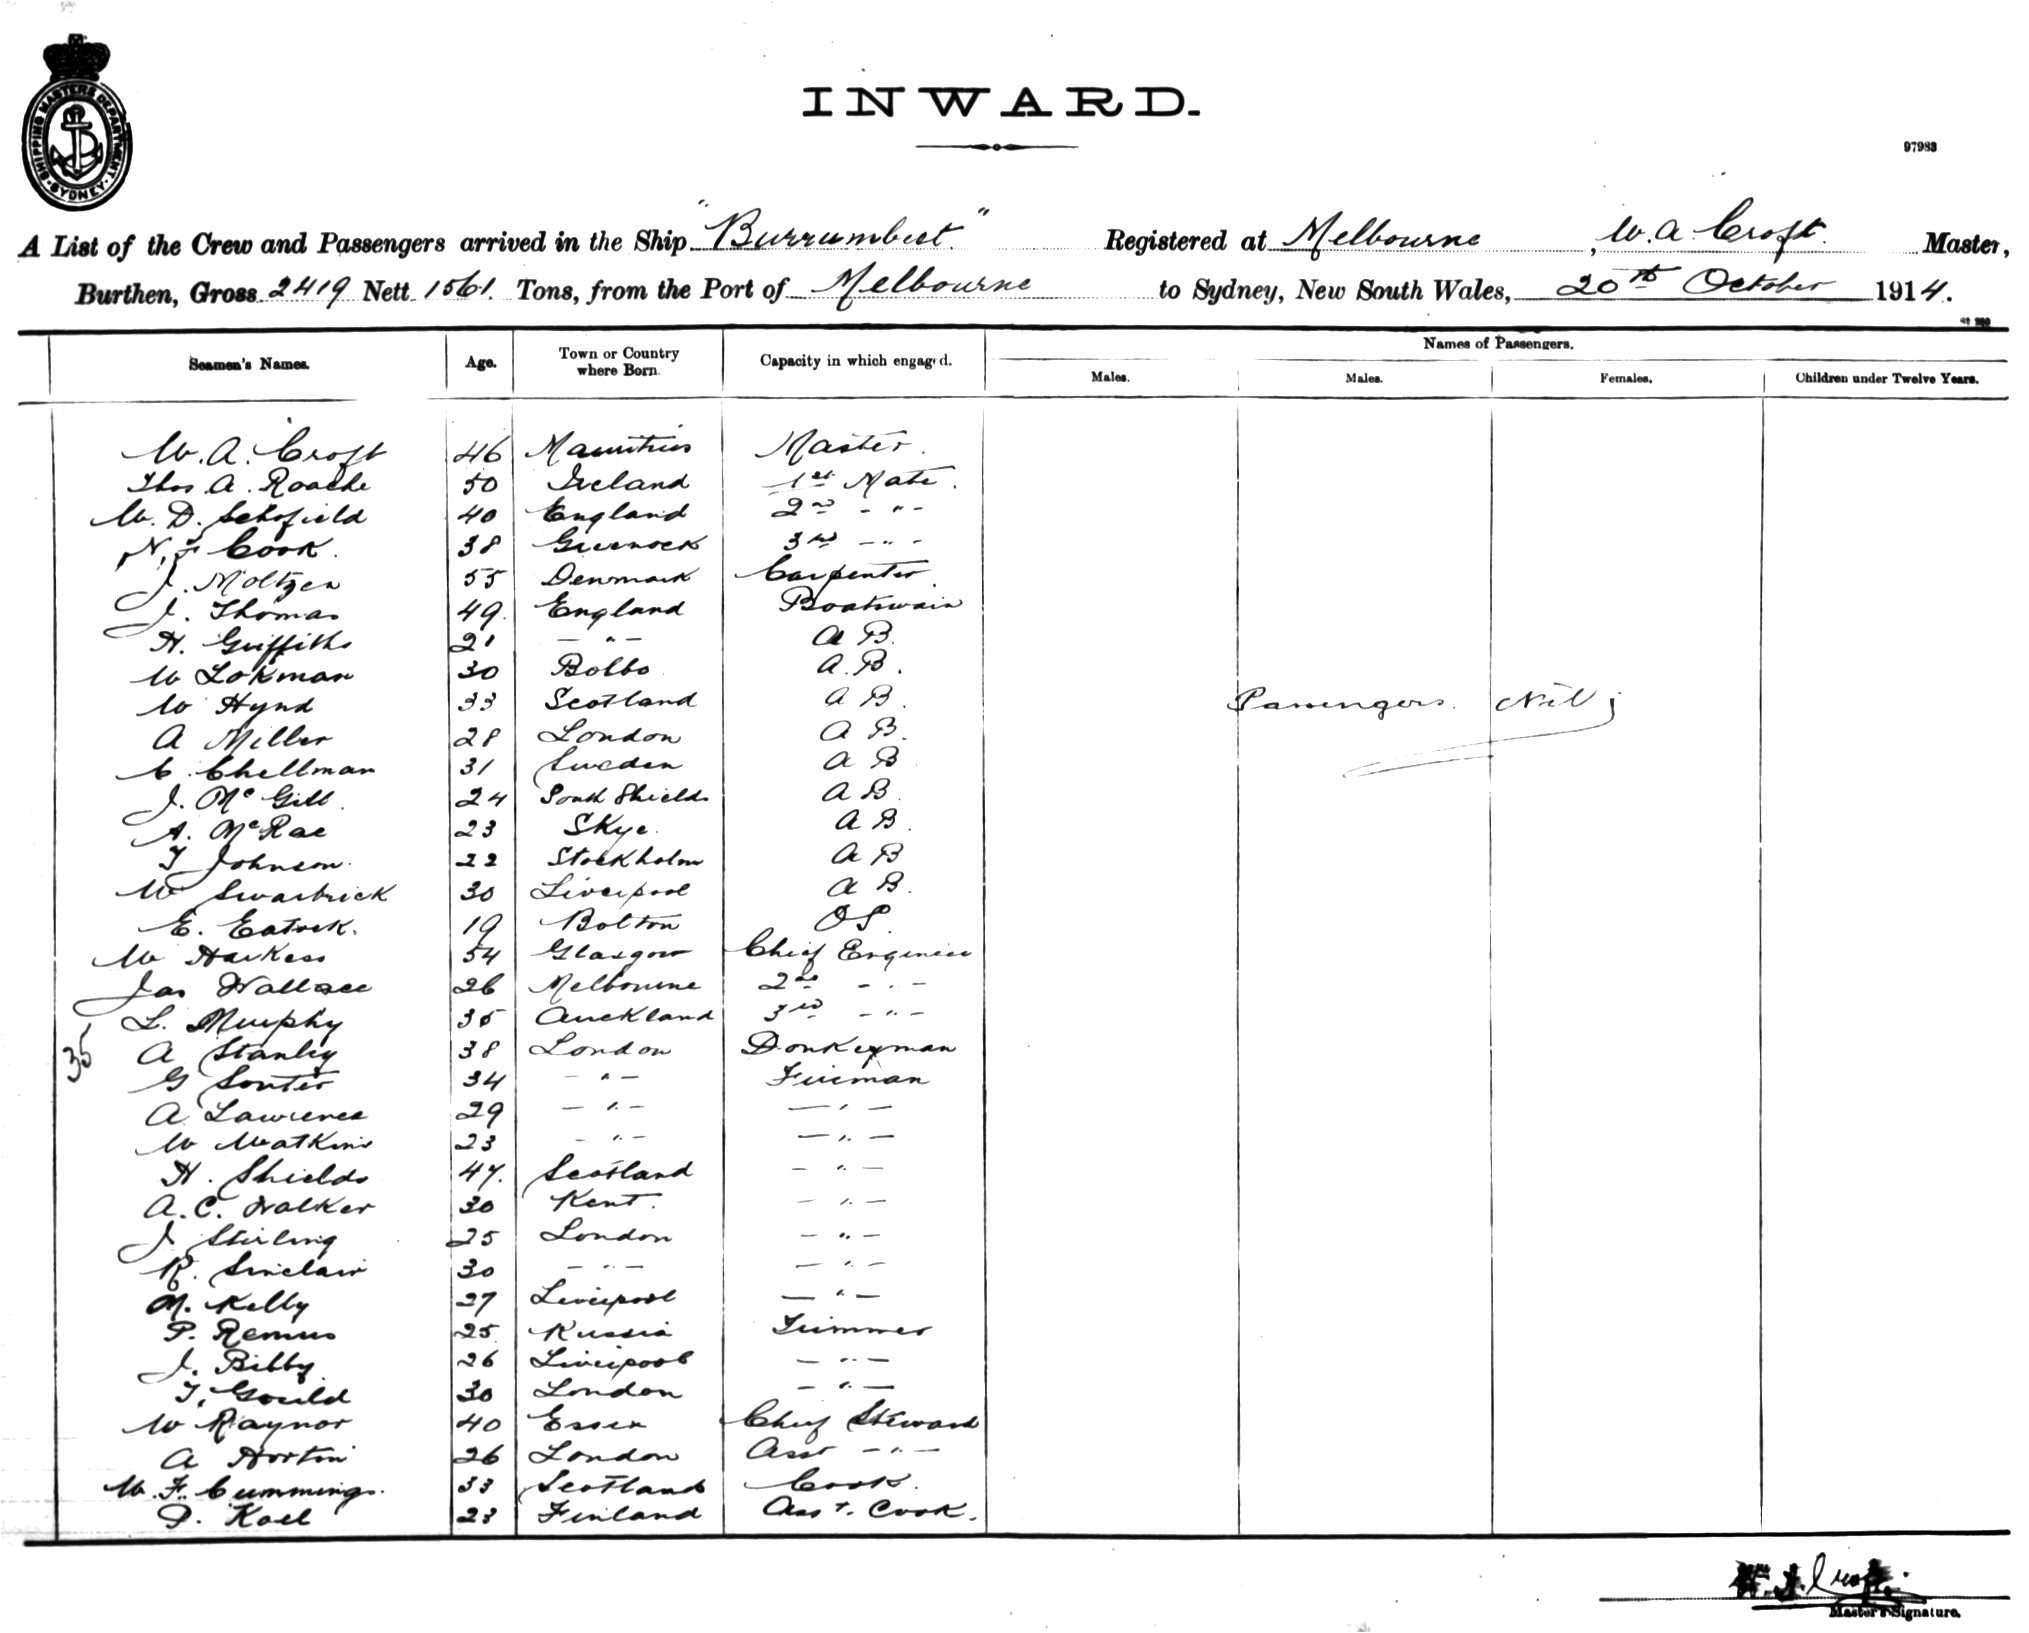 SHIPPING MASTERS DEPARTMENT
SYDNEY
INWARD.
97983
A List of the Crew and Passengers arrived in the Ship "Burrumbeet." Registered at Melbourne, W. A. Croft. Master,
Burthen, Gross 2419 Nett 1561. Tons, from the Port of Melbourne to Sydney, New South Wales, 20th October 1914.
Names of Passengers.
Seamen's Names. Age. Town or Country where Born. Capacity in which engaged. Males. Males. Females. Children under Twelve Years.
W. A. Croft 46 Mauritius Master.
Thos. A. Roache 50 Ireland 1st Mate.
W. D. Schofield 40 England 2nd - " -
N. F Cook. 38 Greenock 3rd - " -
J. Moltzen 55 Denmark Carpenter
J. Thomas 49. England Boatswain
H. Griffiths 21 - " - A B.
W Lokman 30 A. B.
W Hynd 33 Scotland A B. Passengers. Nil
A Miller 28 London A B.
C. Chellman 31 Sweden A B
J. McGill. 24 South Shields A B.
A. McRae 23 Skye. A B.
T Johnson. 22 Stockholm A B
W Swarbrick 30 Liverpool A B.
E. Eatock. 19 Bolton OS.
W Harkess 54 Glasgow Chief Engineer
Jas Wallace 26 Melbourne 2nd - " -
L. Murphy 35 Auckland 3rd - " -
35 A Stanley 38 London Donkeyman
G Souter 34 - " - Fireman
A Lawrence 29 - " - - " -
W Watkins 23 - " - - " -
H. Shields 47. Scotland - " -
A. C. Walker 30 Kent. - " -
J Stirling 25 London - " -
R. Sinclair 30 - " - - " -
M. Kelly 27 Liverpool - " -
P. Remus 25 Russia Trimmer
J. Bibby 26 Liverpool - " -
T. Gould 30 London - " -
W Raynor 40 Essex Chief Steward
A Horton 26 London Asst - " -
W. F. Cummings. 33 Scotland Cook.
P. Koel 23 Finland Asst. Cook.
Master's Signature.